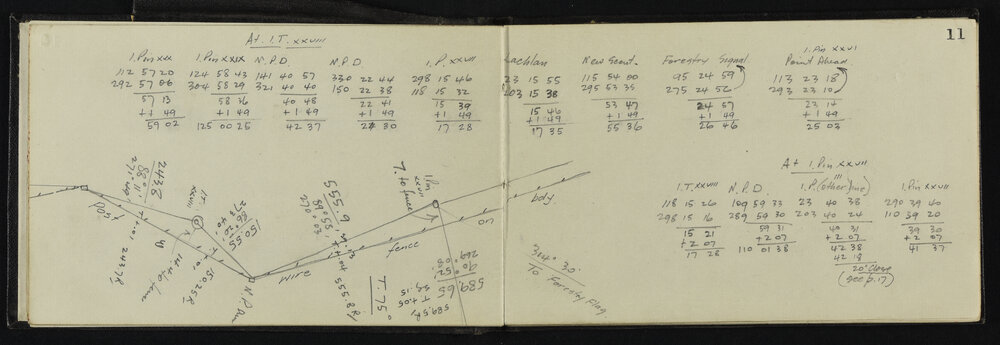 11
At I.T. xxviii
I.Pin xxx I.Pin xxix N.P.D N.P.D I.P. xxvii Lachlan New Scout. Forestry Signal I.Pin xxvi Point Ahead
112 57 20 124 58 43 141 40 57 330 22 44 298 15 46 23 15 55 115 54 00 95 24 59 113 23 18
292 57 06 304 58 29 321 40 40 150 22 38 118 15 32 203 15 38 295 53 35 275 24 56 293 23 10
57 13 58 36 40 48 22 41 15 39 15 46 53 47 24 57 23 14
+1 49 +1 49 +1 49 +1 49 +1 49 +1 49 +1 49 +1 49 +1 49
59 02 125 00 25 42 37 24 30 17 28 17 35 55 36 26 46 25 03
At I.Pin xxvii
I.T. xxviii N.P.D. I.P.(other line) I.Pin
118 15 26 109 59 33 23 40 38 290 39 40
298 15 16 289 59 30 203 40 24 110 39 20
15 21 59 31 40 31 39 30
+2 07 +2 07 +2 07 +2 07
17 28 110 01 38 42 38 41 37
42 18
20" Close
(see p.17)
post
243.8
88° 11'
271° 49'
T.+.01 243.7R,
I.T. xxviii
150.55
150.25R,
N.P.
wire fence on bdy.
555.9
555.8R,
T. 75°
I/n xxvii
T. to fence
589.65
589.5R,
314° 30'
To Forestry Flag.